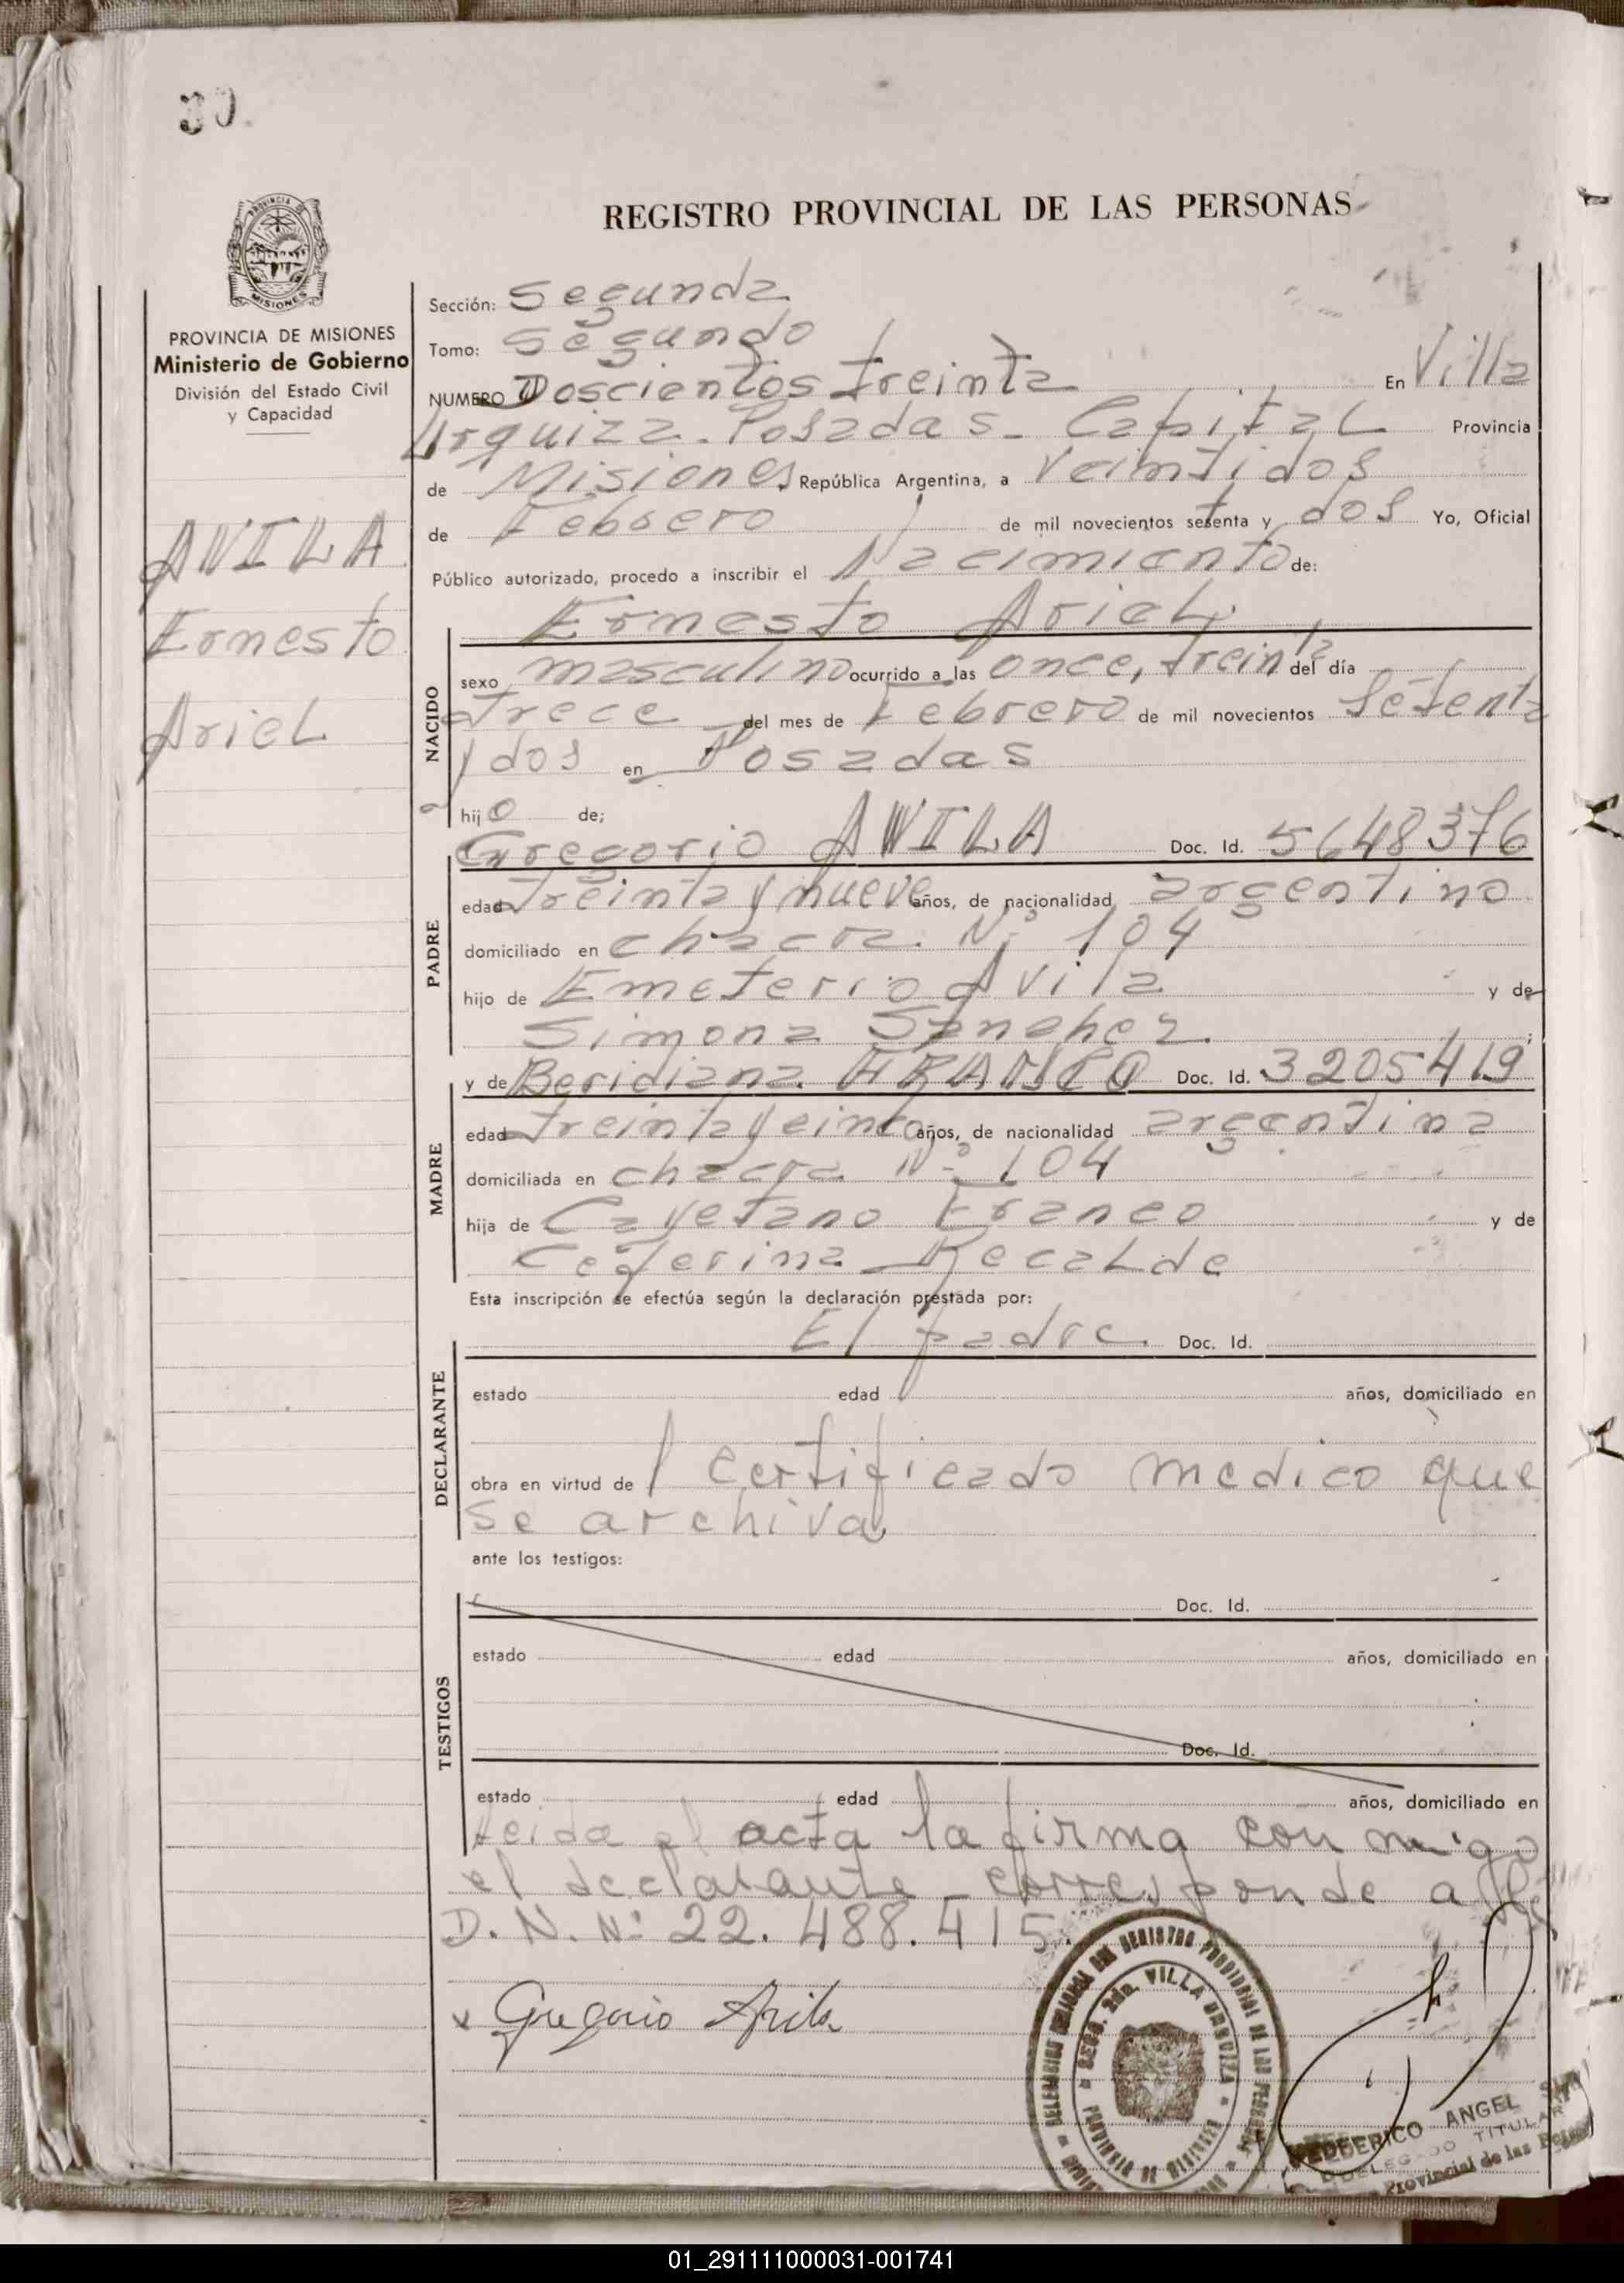 30.
REGISTRO PROVINCIAL DE LAS PERSONAS
PROVINCIA DE MISIONES
Ministerio de Gobierno
División del Estado Civil
y Capacidad
AVILA
Ernesto
Ariel
Sección: Segunda
Tomo: Segundo
NUMERO Doscientos treinta En Villa
Urquiza. Posadas - Capital Provincia
de Misiones República Argentina, a Veintidos
de Febrero de mil novecientos setenta y dos Yo, Oficial
Público autorizado, procedo a inscribir el Nacimiento de:
Ernesto Ariel
NACIDO
sexo masculino ocurrido a las once, treinta del día
trece del mes de Febrero de mil novecientos setenta
y dos en Posadas
hijo de;
Gregorio AVILA Doc. Id. 5648376
PADRE
edad treinta y nueve años, de nacionalidad argentino
domiciliado en chacra Nº 104
hijo de Emeterio Avila y de
Simona Sanchez ;
y de Beridiana FRANCO Doc. Id. 3205419
MADRE
edad treinta y cinco años, de nacionalidad argentina
domiciliada en chacra Nº 104
hija de Cayetano Franco y de
Ceferina Recalde
Esta inscripción se efectúa según la declaración prestada por:
El padre Doc. Id.
DECLARANTE
estado edad años, domiciliado en
obra en virtud de certificado medico que
se archiva
ante los testigos:
TESTIGOS
Doc. Id.
estado edad años, domiciliado en
Doc. Id.
estado edad años, domiciliado en
Leida el acta la firma con migo
el declarante - corresponde a
D. N. Nº 22.488.415.
x Gregorio Avila
SECC. 2da. VILLA URQUIZA
PROVINCIA DE MISIONES
FEDERICO ANGEL
DELEGADO TITULAR
Provincial de las
01_291111000031-001741